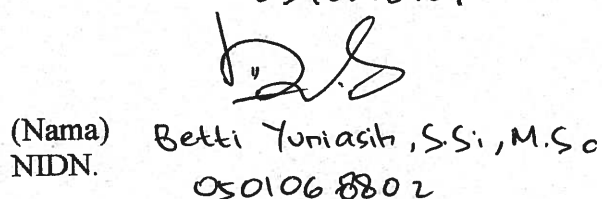 (Nama) Betti Yuniasih, S.Si, M.Sc
NIDN. 0501068802